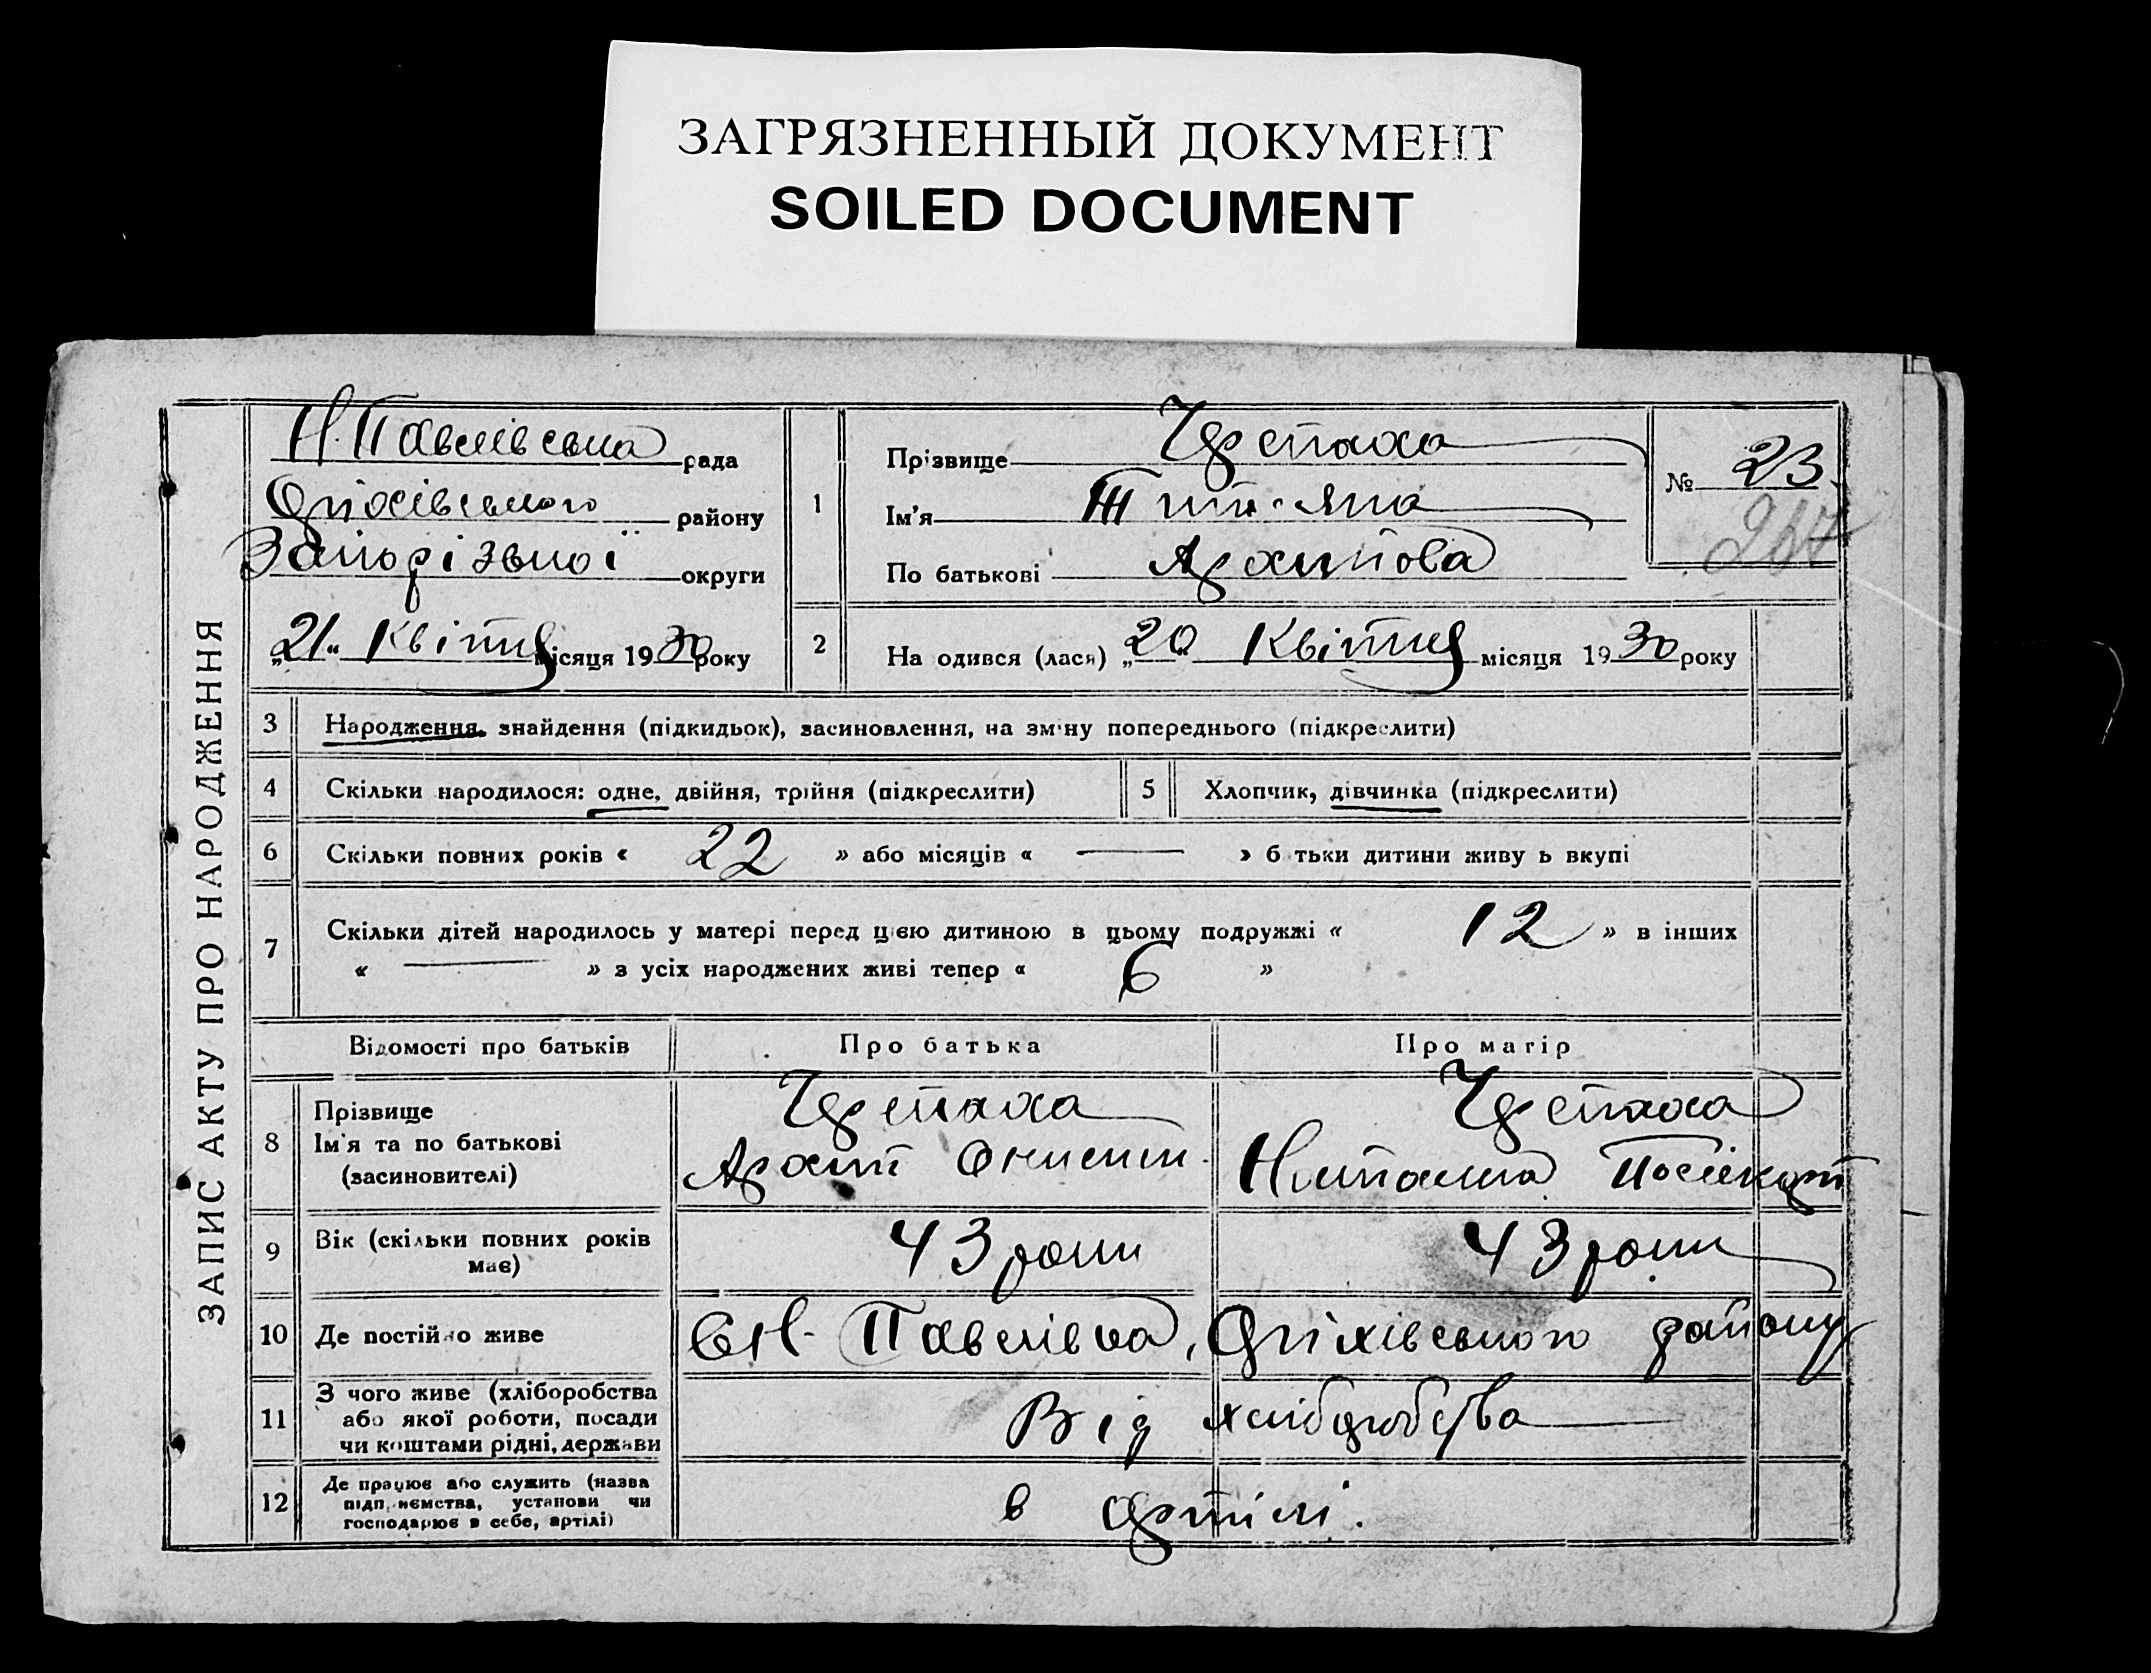 ЗАГРЯЗНЕННЫЙ ДОКУМЕНТ
SOILED DOCUMENT
ЗАПИС АКТУ ПРО НАРОДЖЕННЯ
Н. Павлівська рада
Оріхівського району
Запорізької округи
„21“ Квітня місяця 1930 року
1
Прізвище Черепаха
Ім'я Титяна
По батькові Архипова
№ 23
2
На одився (лася) „20 Квітня місяця 1930 року
3 Народження, знайдення (підкидьок), засиновлення, на зміну попереднього (підкреслити)
4 Скільки народилося: одне, двійня, трійня (підкреслити)
5 Хлопчик, дівчинка (підкреслити)
6 Скільки повних років « 22 » або місяців « — » б тьки дитини живу ь вкупі
7 Скільки дітей народилось у матері перед цією дитиною в цьому подружжі « 12 » в інших
« — » з усіх народжених живі тепер « 6 »
Відомості про батьків Про батька Про матір
8 Прізвище
Ім'я та по батькові
(засиновителі)
Черепаха
Архип
Черепаха
Наталія
9 Вік (скільки повних років
має)
43 роки
43 роки
10 Де постійно живе
с Н- Павлівка, Оріхівського району
11 З чого живе (хліборобства
або якої роботи, посади
чи коштами рідні, держави
Від хліборобства
12 Де працює або служить (назва
підприємства, установи чи
господарює в себе, артілі)
в артілі.